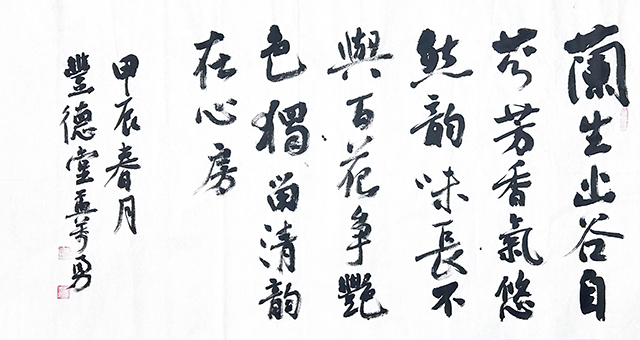 蘭生幽谷自
芬芳香氣悠
然韵味長不
與百花争艷
色獨留清韵
在心房
甲辰春月
豐德堂孟萬勇